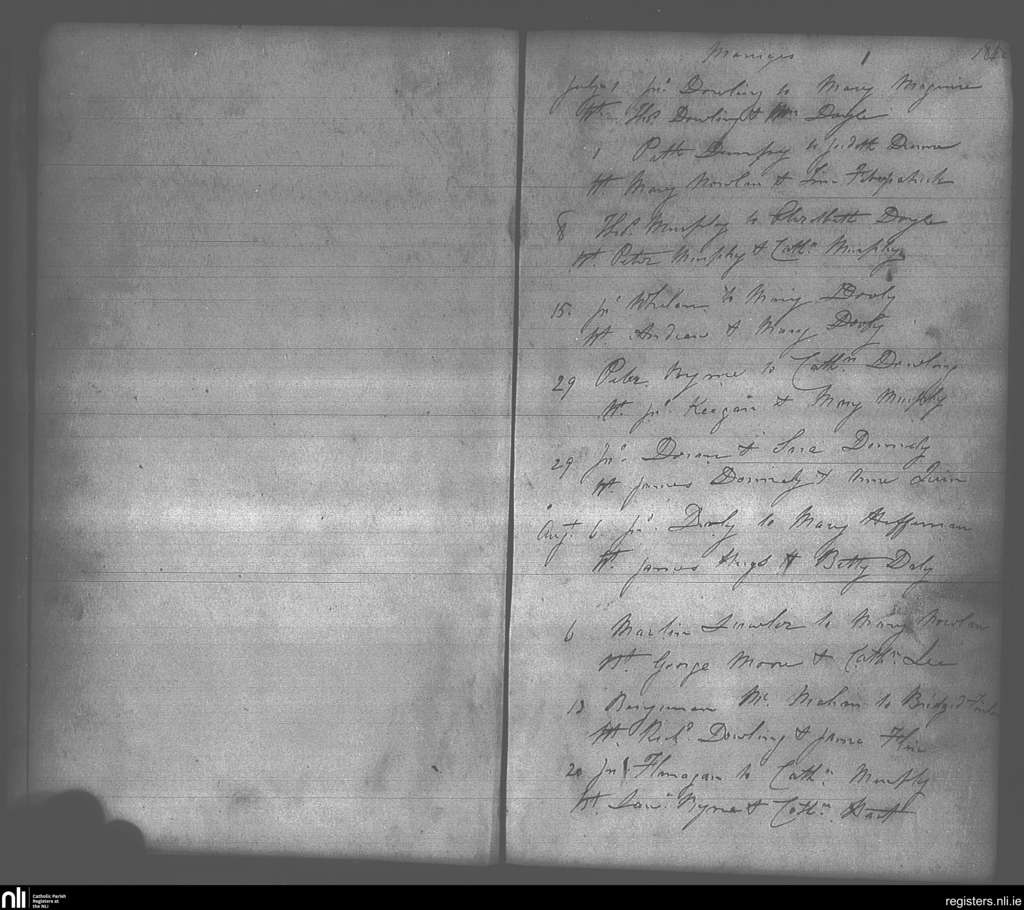 Marriages 184
July 1 Jno Dowling to Mary Maguire
Wt. Thos Dowling & Mrs Doyle
1 Patk Dempsey to Judith Dunne
Wt Mary Nowlan & Fitzpatrick
8 Thos. Murphy to Elizabeth Doyle
Wt. Peter Murphy & Cathn Murphy
15. Jno Whelan to Mary Dooly
Wt Andrew & Mary Dooly
29 Peter Byrne to Cathn Dowling
Wt. Jno. Keegan & Mary Murphy
29 Jno. Doran & Donnely
Wt. James Donnely & Anne Quin
Augt 6. Jno. Dooly to Mary Heffernan
Wt. James & Betty Daly
6 Martin Lawlor to Mary Nowlan
Wt. George Moore & Cathn. Lee
13 Mc. Mahon to Bridget
Wt. Richd. Dowling & Flin
20 Jno Flanagan to Cathn. Murphy
Wt. Lawc. Byrne & Cathn. Hart
NLI
Catholic Parish
Registers at
the NLI
registers.nli.ie